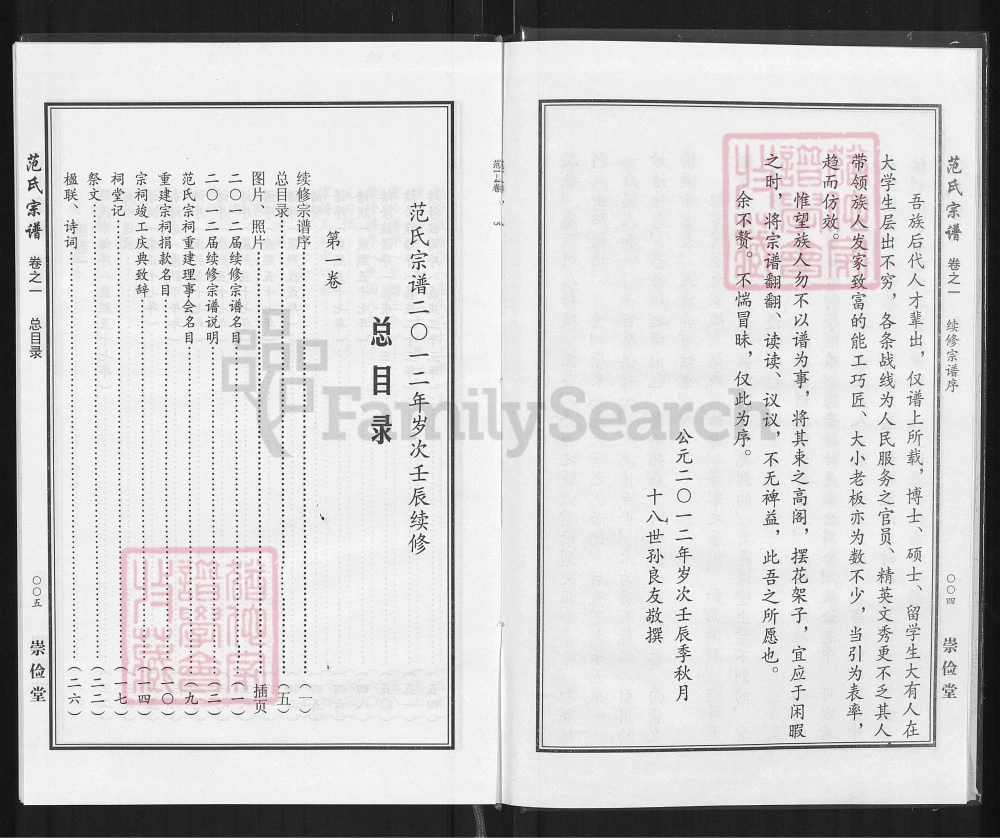 范氏宗谱 卷之一 续修宗谱序 〇〇四 崇俭堂
吾族后代人才辈出，仅谱上所载，博士、硕士、留学生大有人在
大学生层出不穷，各条战线为人民服务之官员、精英文秀更不乏其人
带领族人发家致富的能工巧匠、大小老板亦为数不少，当引为表率，
趋而仿效。
惟望族人勿不以谱为事，将其束之高阁，摆花架子，宜应于闲暇
之时，将宗谱翻翻、读读、议议，不无裨益，此吾之所愿也。
余不赘。不惴冒昧，仅此为序。
公元二〇一二年岁次壬辰季秋月
十八世孙良友敬撰
范氏宗谱二〇一二年岁次壬辰续修
总目录
第一卷
续修宗谱序……（一）
总目录……（五）
图片、照片……插页
二〇一二届续修宗谱名目……
二〇一二届续修宗谱说明……（二）
范氏宗祠重建理事会名目……（九）
重建宗祠捐款名目……（一〇）
宗祠竣工庆典致辞……（一四）
祠堂记……（一七）
祭文……（二二）
楹联、诗词……（二六）
范氏宗谱 卷之一 总目录 〇〇五 崇俭堂
FamilySearch